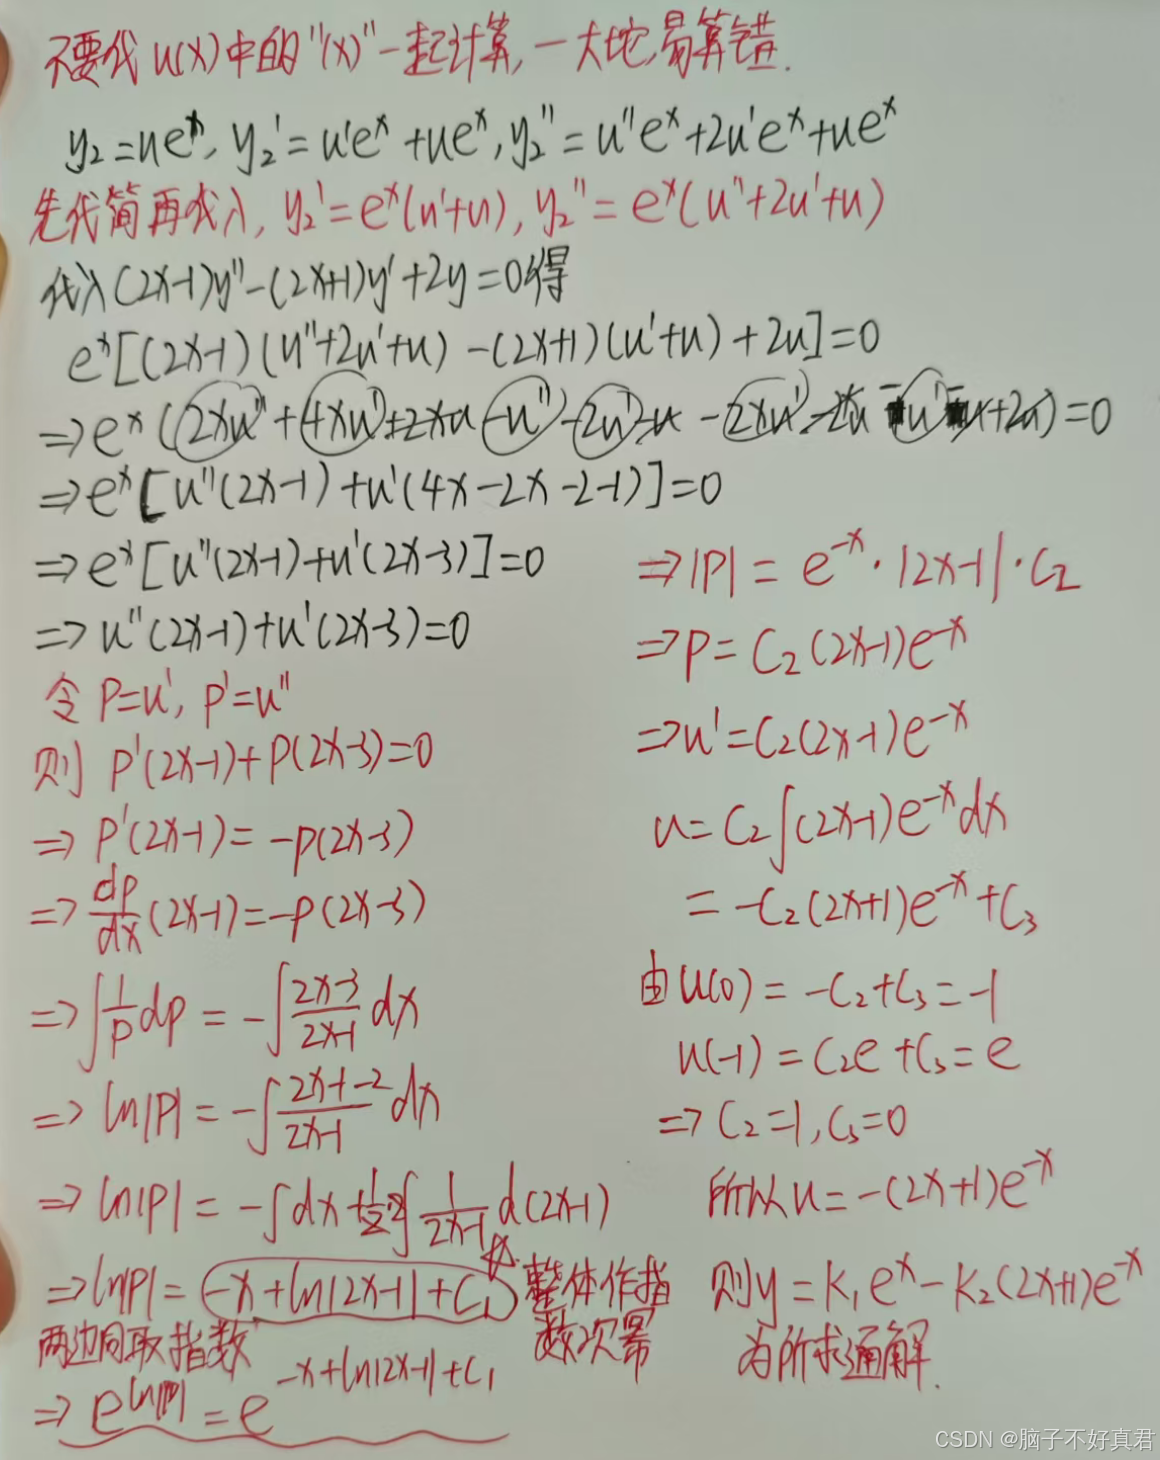 不要代u(x)中的"(x)"一起计算,一大坨,易算错.
y₂=ueˣ, y₂'=u'eˣ+ueˣ, y₂''=u''eˣ+2u'eˣ+ueˣ
先代简再代入, y₂'=eˣ(u'+u), y₂''=eˣ(u''+2u'+u)
代入(2x-1)y''-(2x+1)y'+2y=0得
eˣ[(2x-1)(u''+2u'+u)-(2x+1)(u'+u)+2u]=0
⇒eˣ(2xu''+4xu'+2xu-u''-2u'-u-2xu'-2xu-u'-u+2u)=0
⇒eˣ[u''(2x-1)+u'(4x-2x-2-1)]=0
⇒eˣ[u''(2x-1)+u'(2x-3)]=0
⇒u''(2x-1)+u'(2x-3)=0
令P=u', p'=u''
则 P'(2x-1)+P(2x-3)=0
⇒ P'(2x-1)=-P(2x-3)
⇒ dp/dx(2x-1)=-P(2x-3)
⇒∫1/p dp = -∫(2x-3)/(2x-1) dx
⇒ ln|P| = -∫(2x-1-2)/(2x-1) dx
⇒ ln|P| = -∫dx+½·2∫1/(2x-1) d(2x-1)
⇒ln|P|= -x+ln|2x-1|+C₁ 整体作指
数次幂
两边同取指数
⇒ e^(ln|P|) = e^(-x+ln|2x-1|+C₁)
⇒|P| = e⁻ˣ·|2x-1|·C₂
⇒P=C₂(2x-1)e⁻ˣ
⇒u'=C₂(2x-1)e⁻ˣ
u=C₂∫(2x-1)e⁻ˣdx
=-C₂(2x+1)e⁻ˣ+C₃
由u(0)=-C₂+C₃=-1
u(-1)=C₂e+C₃=e
⇒C₂=1,C₃=0
所以u=-(2x+1)e⁻ˣ
则y=K₁eˣ-K₂(2x+1)e⁻ˣ
为所求通解.
CSDN @脑子不好真君